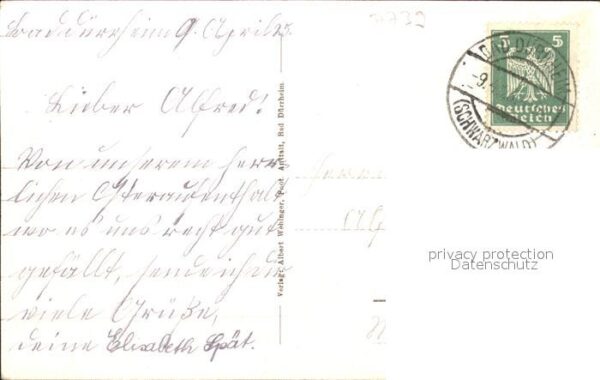 Bad Dürrheim 9. April 25
7732
Lieber Alfred!
Von unserem herr-
lichen Osteraufenthalt
wo es uns recht gut
gefällt, sende ich dir
viele Grüße,
deine Elisabeth Spät.
Verlag: Albert Wehinger, Post Anstalt, Bad Dürrheim
Herrn
5 5
Deutsches
Reich
BAD DÜRRHEIM
-9.
(SCHWARZWALD)
privacy protection
Datenschutz